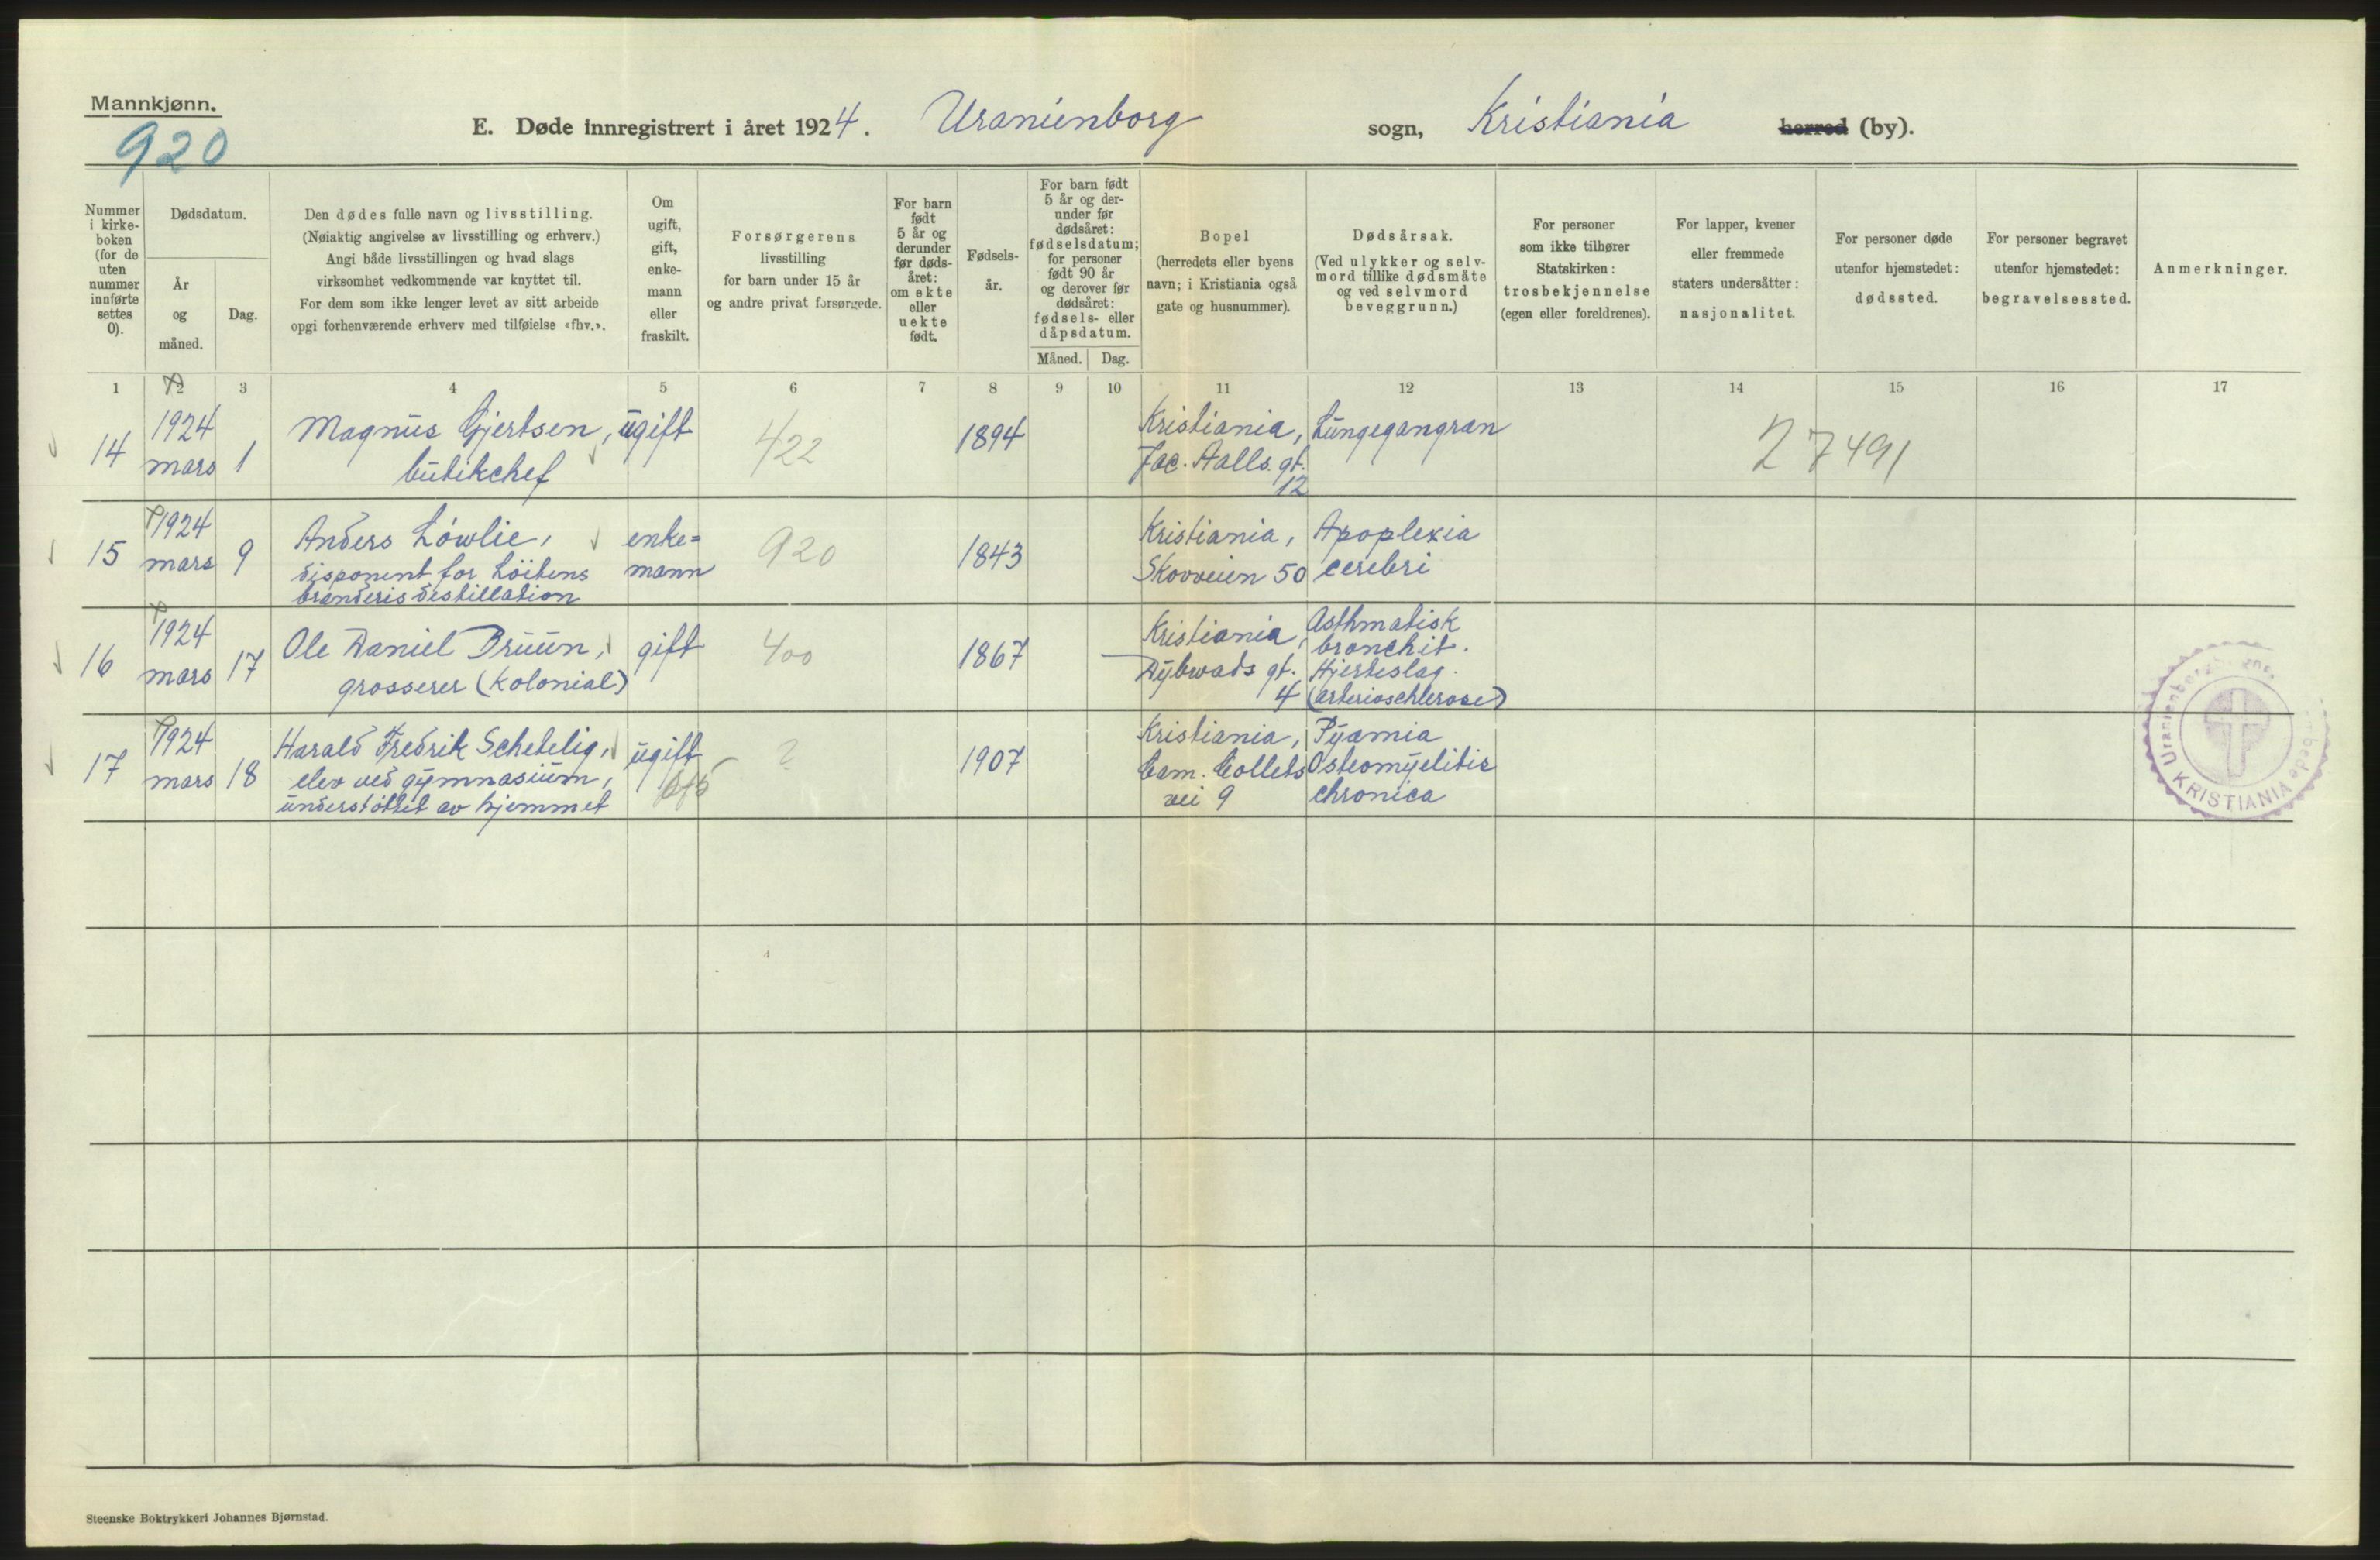 Mannkjønn.
920
E. Døde innregistrert i året 1924. Uranienborg sogn, Kristiania herred (by).
Nummer i kirke-boken (for de uten nummer innførte settes 0).
Dødsdatum.
År og måned.
Dag.
Den dødes fulle navn og livsstilling.
(Nøiaktig angivelse av livsstilling og erhverv.)
Angi både livsstillingen og hvad slags
virksomhet vedkommende var knyttet til.
For dem som ikke lenger levet av sitt arbeide
opgi forhenværende erhverv med tilføielse «fhv.».
Om ugift, gift, enke-mann eller fraskilt.
Forsørgerens
livsstilling
for barn under 15 år
og andre privat forsørgede.
For barn født 5 år og derunder før døds-året: om ekte eller uekte født.
Fødsels-år.
For barn født 5 år og der-under før dødsåret: fødselsdatum; for personer født 90 år og derover før dødsåret: fødsels- eller dåpsdatum.
Måned. Dag.
Bopel
(herredets eller byens
navn; i Kristiania også
gate og husnummer).
Dødsårsak.
(Ved ulykker og selv-
mord tillike dødsmåte
og ved selvmord
beveggrunn.)
For personer
som ikke tilhører
Statskirken:
trosbekjennelse
(egen eller foreldrenes).
For lapper, kvener
eller fremmede
staters undersåtter:
nasjonalitet.
For personer døde
utenfor hjemstedet:
dødssted.
For personer begravet
utenfor hjemstedet:
begravelsessted.
Anmerkninger.
1 2 3 4 5 6 7 8 9 10 11 12 13 14 15 16 17
14 1924 mars 1 Magnus Gjertsen, butikchef ugift 422 1894 Kristiania, Jac. Aalls. gt. 12 Lungegangræn 27491
15 1924 mars 9 Anders Lówlie, disponent for Löitens brænderis destillation enke=mann 920 1843 Kristiania, Skovveien 50 Apoplexia cerebri
16 1924 mars 17 Ole Daniel Bruun, grosserer (Kolonial) gift 400 1867 Kristiania, Dybwads gt. 4 Asthmatisk bronchit. Hjerteslag. (arterioschlerose)
17 1924 mars 18 Harald Fredrik Schetelig, elev ved gymnasium, understóttet av hjemmet ugift ? 1907 Kristiania, Cam. Collets vei 9 Pyæmia Osteomyelitis chronica
Uranienborg
KRISTIANIA
Steenske Boktrykkeri Johannes Bjørnstad.